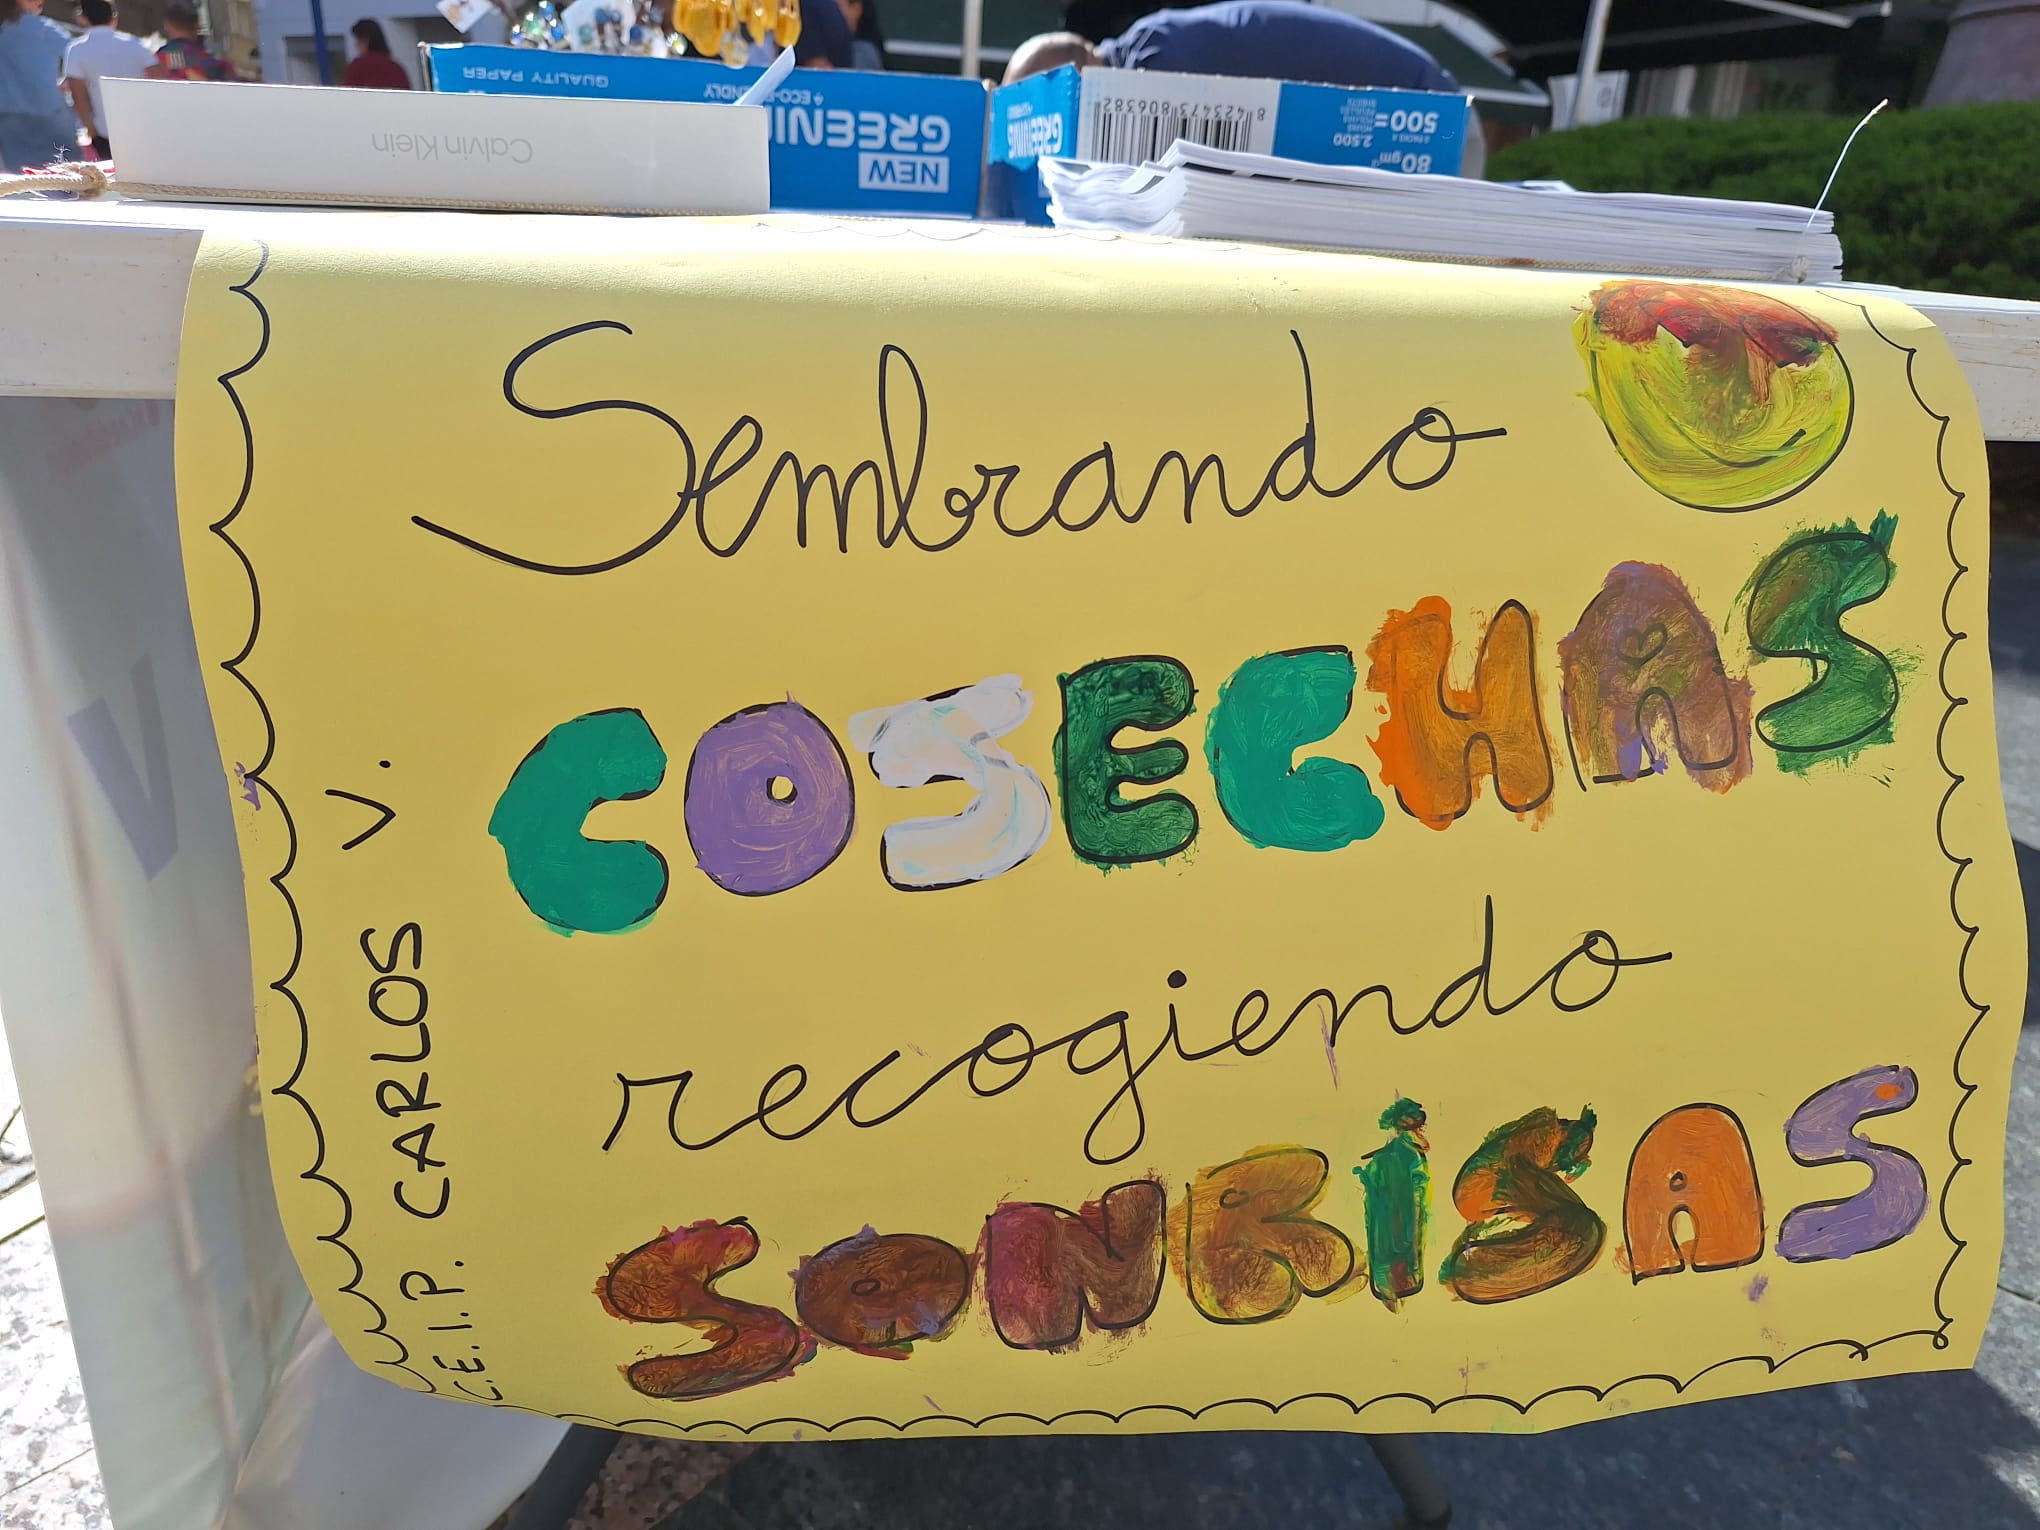 QUALITY PAPER
+ ECO-FRIENDLY
NEW
GREENING
GREENING
8 423473 806382
500=
2.500
80 gm²
Calvin Klein
Sembrando
COSECHAS
recogiendo
SONRISAS
C.E.I.P. CARLOS V.